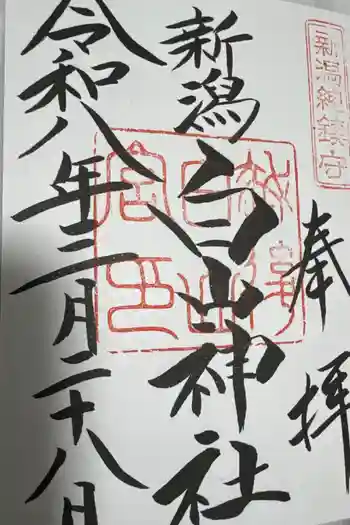 新潟総鎮守
奉拝
新潟白山神社
令和八年三月二十八日